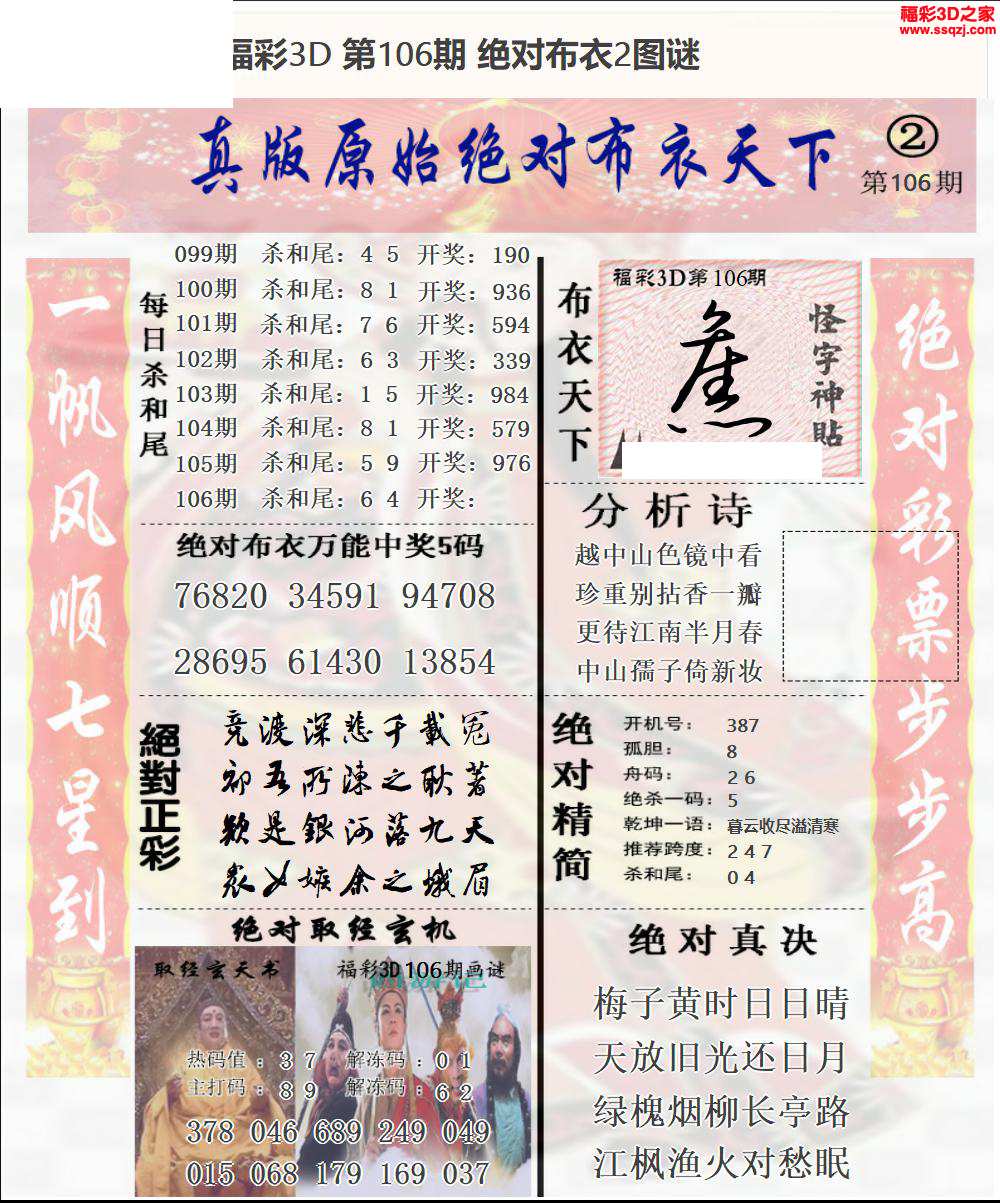 福彩3D之家
www.ssqzj.com
福彩3D 第106期 绝对布衣2图谜
真版原始绝对布衣天下
②
第106期
一帆风顺七星到
每日杀和尾
099期 杀和尾: 4 5 开奖: 190
100期 杀和尾: 8 1 开奖: 936
101期 杀和尾: 7 6 开奖: 594
102期 杀和尾: 6 3 开奖: 339
103期 杀和尾: 1 5 开奖: 984
104期 杀和尾: 8 1 开奖: 579
105期 杀和尾: 5 9 开奖: 976
106期 杀和尾: 6 4 开奖:
绝对布衣万能中奖5码
76820 34591 94708
28695 61430 13854
絕對正彩
竞渡深悲千載冤
初吾所陳之耿著
欲是銀河落九天
衆女嫉余之蛾眉
绝对取经玄机
取经玄天书
福彩3D106期画谜
热码值:3 7 解冻码:0 1
主打码:8 9 解冻码:6 2
378 046 689 249 049
015 068 179 169 037
布衣天下
福彩3D第106期
怪字神貼
分析诗
越中山色镜中看
珍重别拈香一瓣
更待江南半月春
中山孺子倚新妆
绝对精简
开机号: 387
孤胆: 8
舟码: 2 6
绝杀一码: 5
乾坤一语: 暮云收尽溢清寒
推荐跨度: 2 4 7
杀和尾: 0 4
绝对真决
梅子黄时日日晴
天放旧光还日月
绿槐烟柳长亭路
江枫渔火对愁眠
绝对彩票步步高